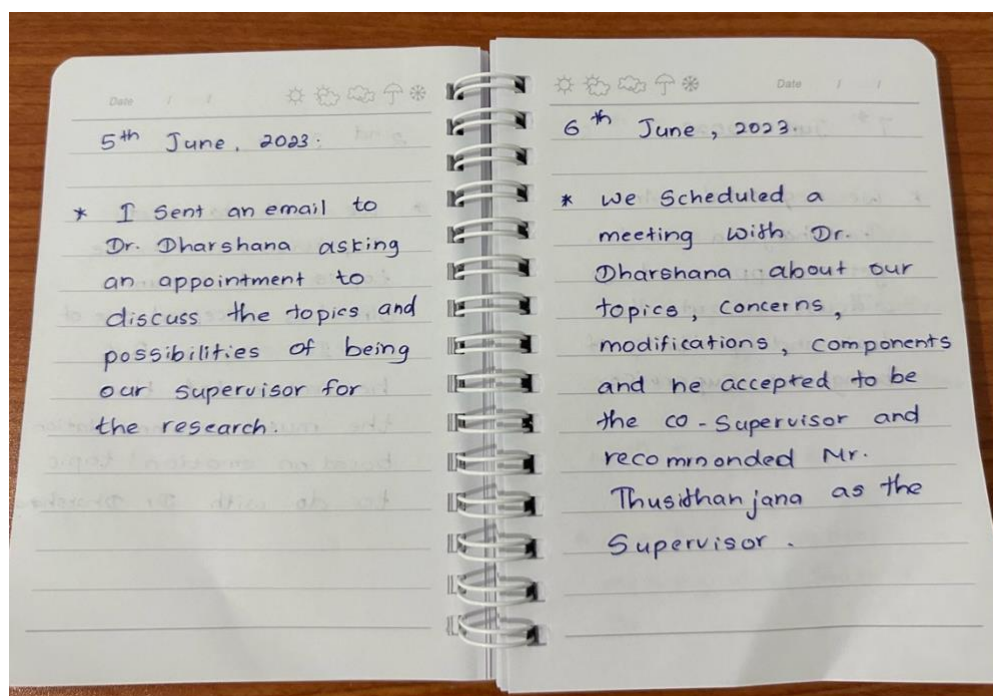 Date / /
5th June, 2023.
* I sent an email to
Dr. Dharshana asking
an appointment to
discuss the topics, and
possibilities of being
our supervisor for
the research.
Date / /
6th June, 2023.
* We Scheduled a
meeting with Dr.
Dharshana about our
topics, concerns,
modifications, components
and he accepted to be
the co-Supervisor and
recommonded Mr.
Thusithanjana as the
Supervisor.